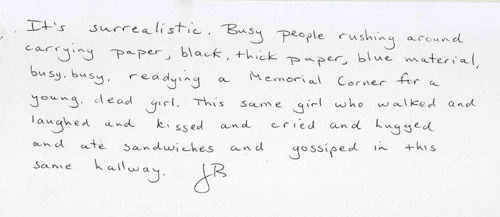 It's surrealistic. Busy people rushing around
carrying paper, black, thick paper, blue material,
busy, busy, readying a Memorial Corner for a
young, dead girl. This same girl who walked and
laughed and kissed and cried and hugged
and ate sandwiches and gossiped in this
same hallway. JB